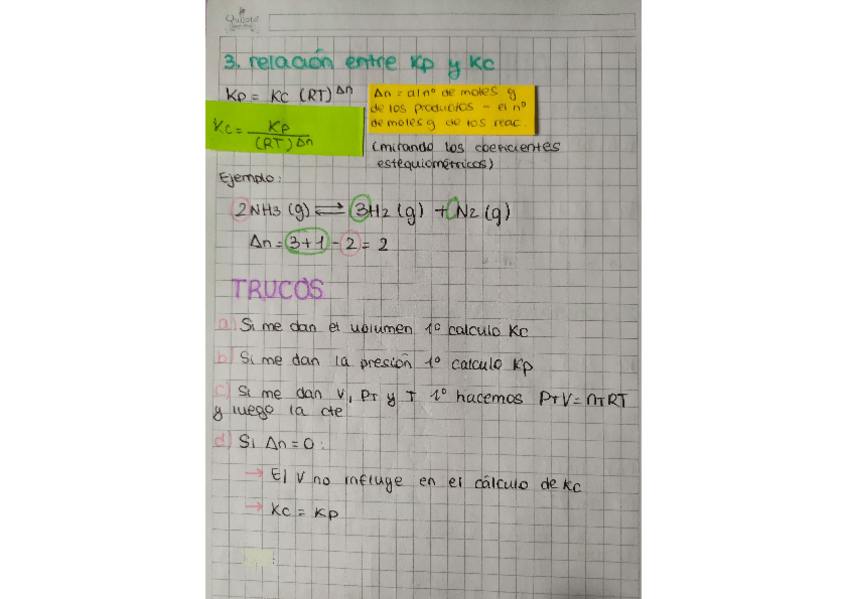 Quijote
3. relación entre Kp y Kc
Kp = Kc (RT)^Δn
Δn = al nº de moles g
de los productos - el nº
de moles g de los reac.
Kc = Kp / (RT)^Δn
(mirando los coeficientes
estequiométricos)
Ejemplo:
2NH3 (g) ⇌ 3H2 (g) + N2 (g)
Δn = 3+1 - 2 = 2
TRUCOS
a) Si me dan el volumen 1º calculo Kc
b) Si me dan la presión 1º calculo Kp
c) Si me dan V, PT y T 1º hacemos PTV = nTRT
y luego la cte
d) Si Δn = 0:
→ El V no influye en el cálculo de Kc
→ Kc = Kp